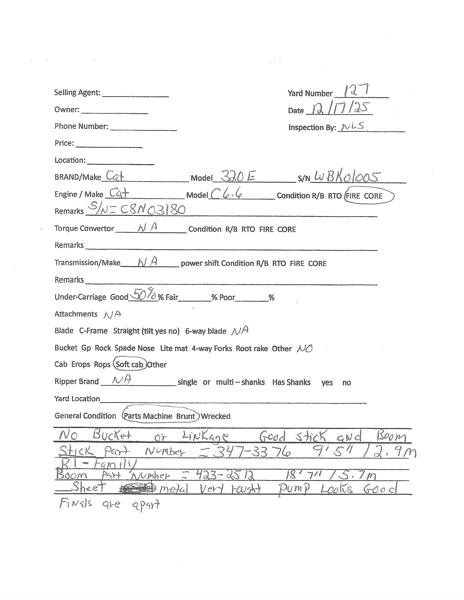 Selling Agent: Yard Number 127
Owner: Date 12/17/25
Phone Number: Inspection By: NLS
Price:
Location:
BRAND/Make Cat Model 320E S/N WBK01005
Engine / Make Cat Model C6.6 Condition R/B RTO FIRE CORE
Remarks S/N=C8N03180
Torque Convertor NA Condition R/B RTO FIRE CORE
Remarks
Transmission/Make NA power shift Condition R/B RTO FIRE CORE
Remarks
Under-Carriage Good 50% % Fair % Poor %
Attachments NA
Blade C-Frame Straight (tilt yes no) 6-way blade NA
Bucket Gp Rock Spade Nose Lite mat 4-way Forks Root rake Other NO
Cab Erops Rops Soft cab Other
Ripper Brand NA single or multi – shanks Has Shanks yes no
Yard Location
General Condition Parts Machine Brunt Wrecked
No Bucket or Linkage Good stick and Boom
Stick Part Number = 347-3376 9'5" / 2.9m
R1-Family
Boom Part Number = 423-2512 18'7" / 5.7m
Sheet metal Very rought Pump Looks Good
Finals are apart